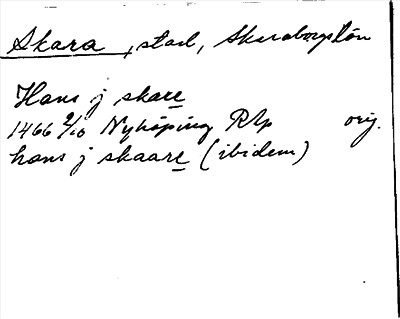 Skara, stad, Skaraborgs län
Hans j skare
1466 2/10 Nyköping RAp orig.
hans j skaare (ibidem)